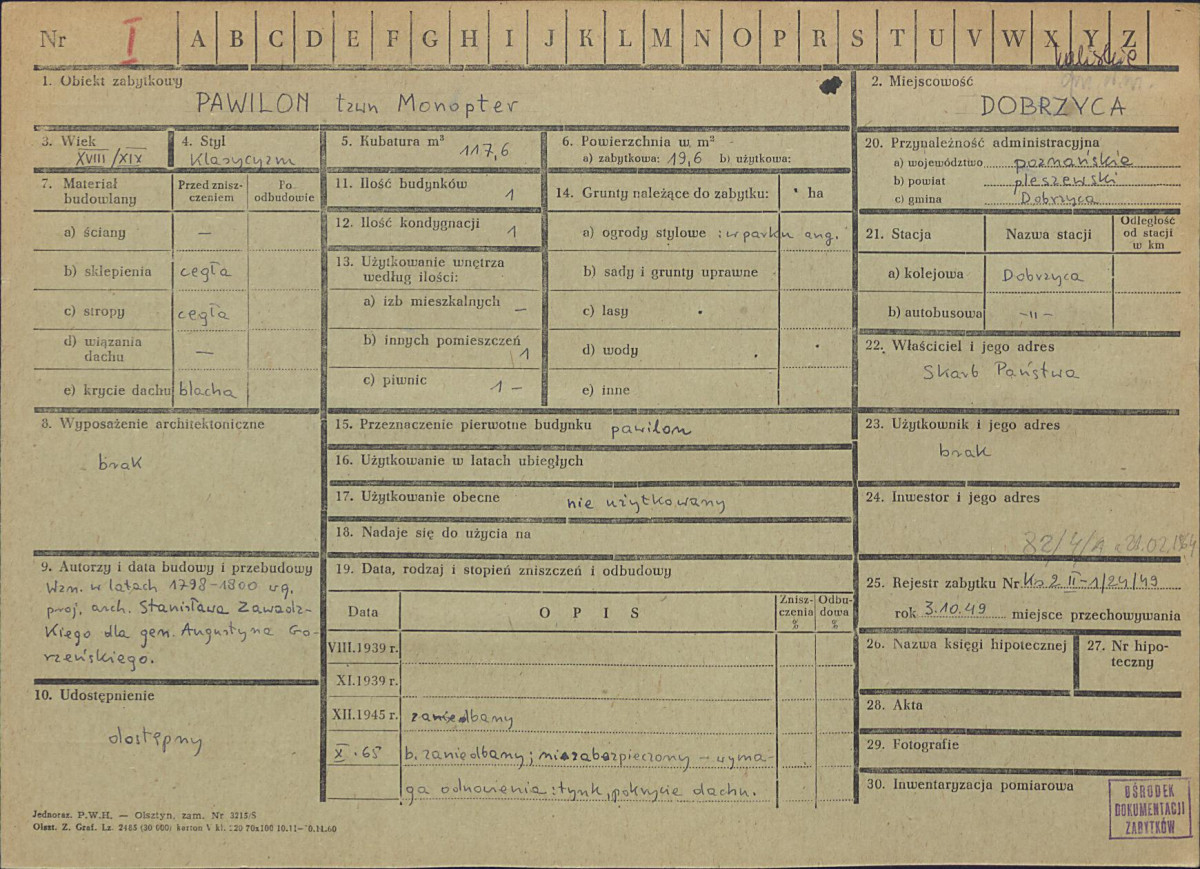 Nr I A B C D E F G H I J K L M N O P R S T U V W X Y Z
kaliskie
1. Obiekt zabytkowy
PAWILON tzwn Monopter
2. Miejscowość
DOBRZYCA
3. Wiek
XVIII/XIX
4. Styl
Klasycyzm
5. Kubatura m³ 117,6
6. Powierzchnia w m²
a) zabytkowa: 19,6 b) użytkowa:
7. Materiał budowlany
Przed zniszczeniem
Po odbudowie
a) ściany —
b) sklepienia cegła
c) stropy cegła
d) wiązania dachu —
e) krycie dachu blacha
8. Wyposażenie architektoniczne
brak
9. Autorzy i data budowy i przebudowy
Wzn. w latach 1798-1800 wg.
proj. arch. Stanisława Zawadz-
kiego dla gen. Augustyna Go-
rzeńskiego.
10. Udostępnienie
dostępny
11. Ilość budynków 1
12. Ilość kondygnacji 1
13. Użytkowanie wnętrza
według ilości:
a) izb mieszkalnych —
b) innych pomieszczeń 1
c) piwnic 1 —
14. Grunty należące do zabytku: ha
a) ogrody stylowe : w parku ang.
b) sady i grunty uprawne
c) lasy
d) wody
e) inne
15. Przeznaczenie pierwotne budynku pawilon
16. Użytkowanie w latach ubiegłych
17. Użytkowanie obecne nie użytkowany
18. Nadaje się do użycia na
19. Data, rodzaj i stopień zniszczeń i odbudowy
Data OPIS Znisz-czenia % Odbu-dowa %
VIII.1939 r.
XI.1939 r.
XII.1945 r. zaniedbany
X.65 b. zaniedbany; niezabezpieczony – wyma-
ga odnowienia: tynk, pokrycie dachu.
20. Przynależność administracyjna
a) województwo poznańskie
b) powiat pleszewski
c) gmina Dobrzyca
21. Stacja
Nazwa stacji
Odległość od stacji w km
a) kolejowa Dobrzyca
b) autobusowa -"-
22. Właściciel i jego adres
Skarb Państwa
23. Użytkownik i jego adres
brak
24. Inwestor i jego adres
82/4/A 21.02.1964
25. Rejestr zabytku Nr Ks 2 II-1/24/49
rok 3.10.49 miejsce przechowywania
26. Nazwa księgi hipotecznej
27. Nr hipo-
teczny
28. Akta
29. Fotografie
30. Inwentaryzacja pomiarowa
OŚRODEK
DOKUMENTACJI
ZABYTKÓW
Jednoraz. P.W.H. — Olsztyn, zam. Nr 3215/S